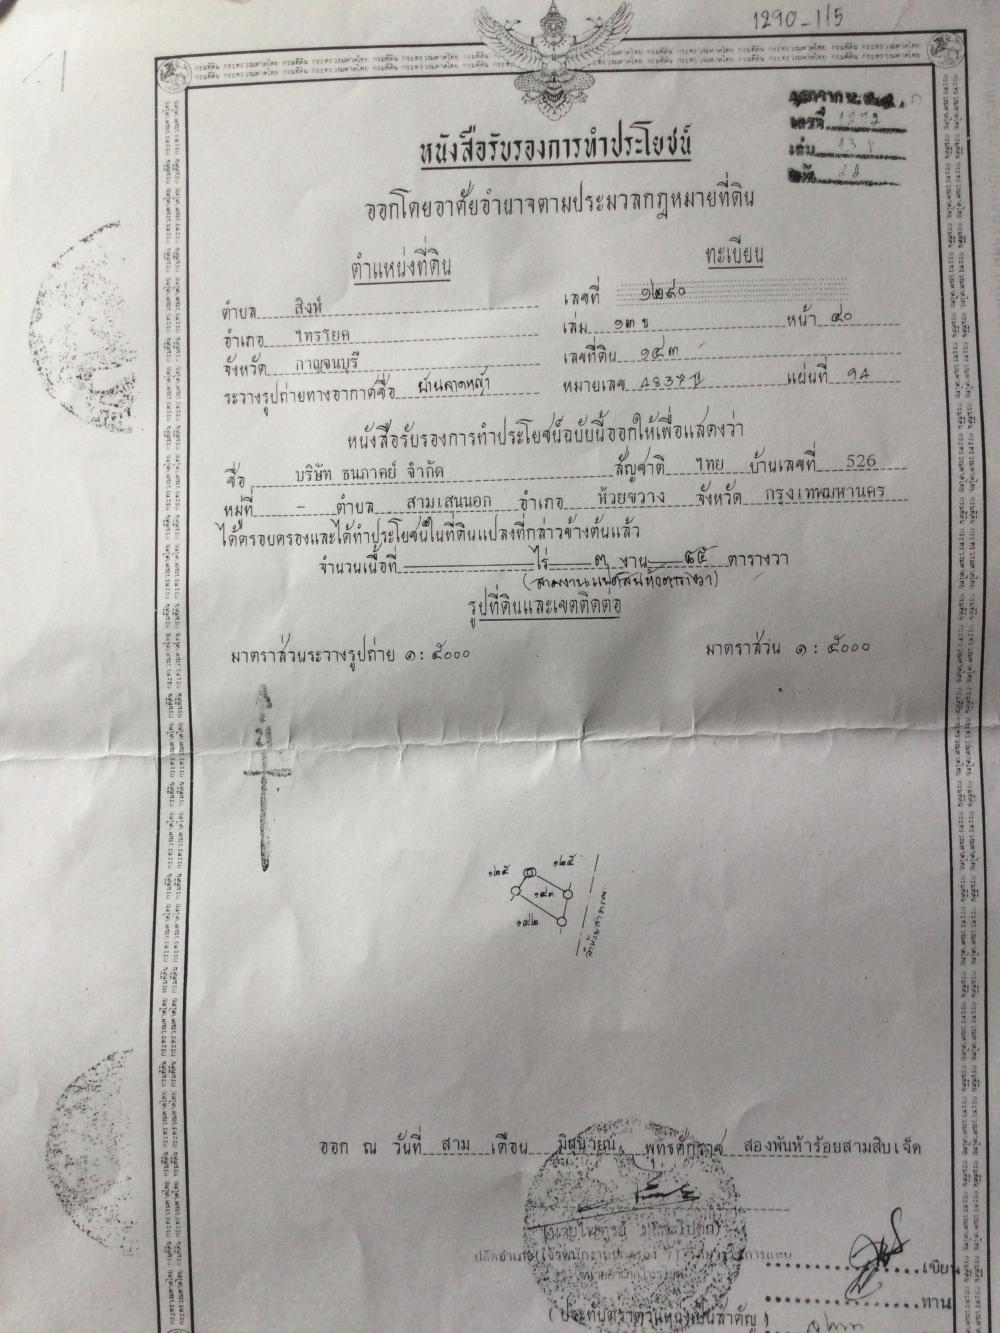 1290-115
เลขที่
เล่ม
หนังสือรับรองการทำประโยชน์
ออกโดยอาศัยอำนาจตามประมวลกฎหมายที่ดิน
ตำแหน่งที่ดิน
ทะเบียน
ตำบล สิงห์
เลขที่ ๑๒๙๐
อำเภอ ไทรโยค
เล่ม ๑๓ ข หน้า ๙๐
จังหวัด กาญจนบุรี
เลขที่ดิน ๑๔๓
ระวางรูปถ่ายทางอากาศชื่อ บ้านลาดหญ้า
หมายเลข 4837 แผ่นที่ 94
หนังสือรับรองการทำประโยชน์ฉบับนี้ออกให้เพื่อแสดงว่า
ชื่อ บริษัท ธนภาคย์ จำกัด สัญชาติ ไทย บ้านเลขที่ 526
หมู่ที่ - ตำบล สามเสนนอก อำเภอ ห้วยขวาง จังหวัด กรุงเทพมหานคร
ได้ครอบครองและได้ทำประโยชน์ในที่ดินแปลงที่กล่าวข้างต้นแล้ว
จำนวนเนื้อที่ ไร่ ๓ งาน ตารางวา
รูปที่ดินและเขตติดต่อ
มาตราส่วนระวางรูปถ่าย ๑ : ๕๐๐๐
มาตราส่วน ๑ : ๕๐๐๐
๑๒๕
๑๒๕
๑๔๓
๑๔๒
ออก ณ วันที่ สาม เดือน มิถุนายน พุทธศักราช สองพันห้าร้อยสามสิบเจ็ด
เขียน
ทาน
(ประทับตราตำแหน่งเป็นสำคัญ)